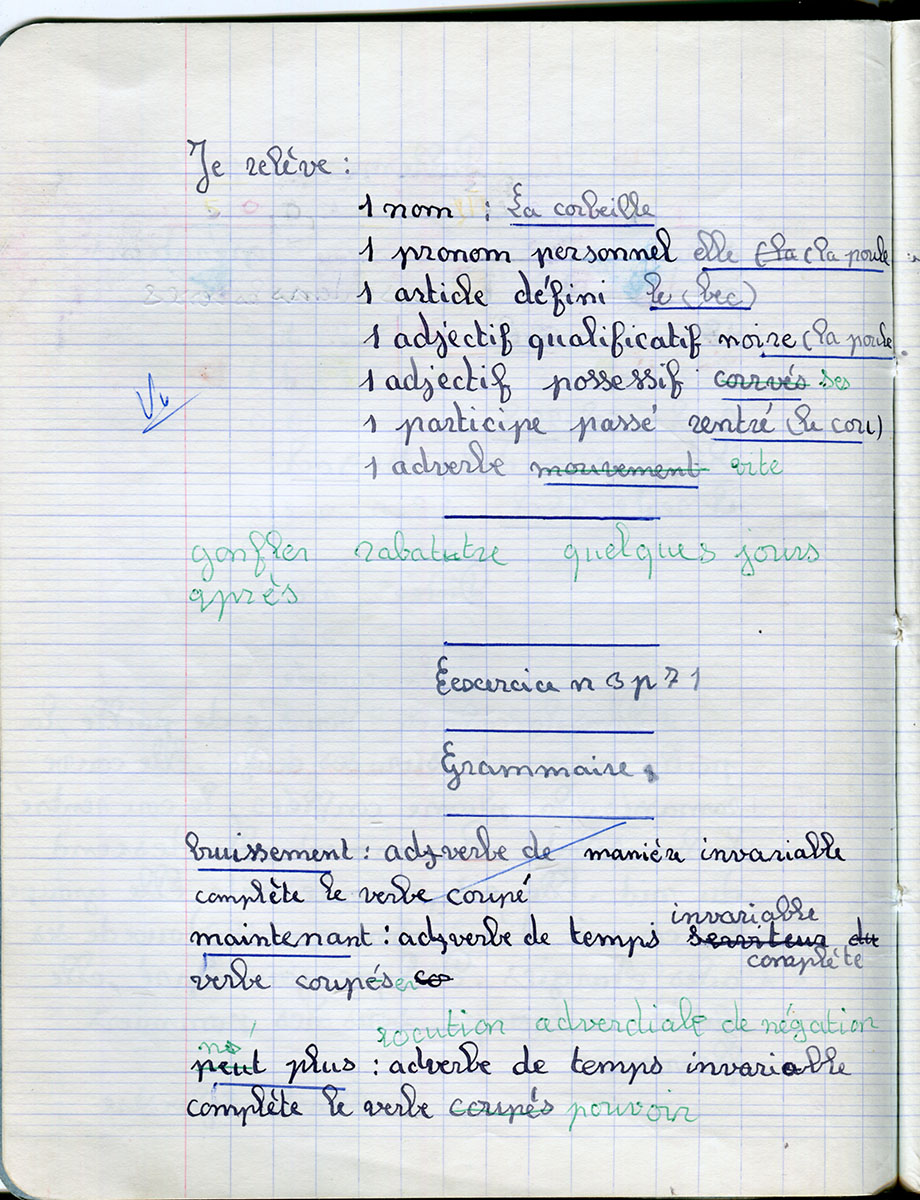 Je relève :
1 nom : La corbeille
1 pronom personnel elle (la (la poule
1 article défini le (bec)
1 adjectif qualificatif noire (la poule
1 adjectif possessif couvés ses
Vu
1 participe passé rentré (le cou)
1 adverbe mouvement vite
gonfler rabattre quelques jours
après
Exercice n 3 p 71
Grammaire
bruissement : adjverbe de manière invariable
complète le verbe coupé
invariable
maintenant : adjverbe de temps serviteur du
complète
verbe coupéser co
locution adverdiale de négation
ne
peut plus : adverbe de temps invariable
complète le verbe coupés pouvoir